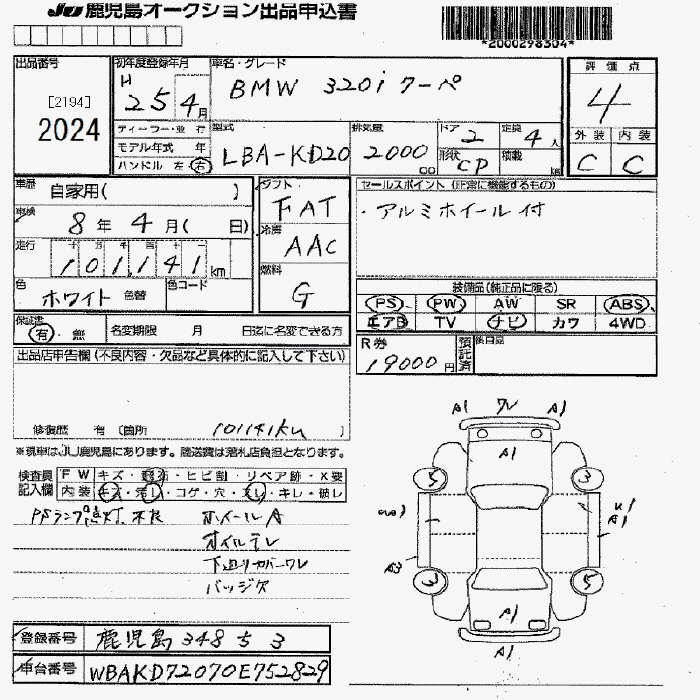 JU 鹿児島オークション出品申込書
*2000298304*
出品番号
[2194]
2024
初年度登録年月
H 25 4月
車名・グレード
BMW 320i クーペ
評価点
4
外装 内装
C C
ディーラー・並行
モデル年式 年
ハンドル 左 右
型式
LBA-KD20
排気量
2000 cc
ドア 2
定員 4人
形状 CP
積載 kg
車歴 自家用( )
車検 8年 4月( 日)
走行
101,141 km
色 ホワイト 色替
色コード
シフト
FAT
冷房
AAC
燃料
G
セールスポイント (正常に機能するもの)
・アルミホイール付
装備品(純正品に限る)
PS PW AW SR ABS
エアB TV ナビ カワ 4WD
保証書
有・無
名変期限 月 日迄に名変できる方
R券
19000円
預託済
後日品
出品店申告欄(不良内容・欠品など具体的に記入して下さい)
修復歴 有 (箇所 101141km )
※現車はJU鹿児島にあります。陸送費は落札店負担となります。
検査員記入欄
FW キズ・・ヒビ割・リペア跡・X要
内装 キズ・汚レ・コゲ・穴・スレ・キレ・破レ
PSランプ点灯 不良
ホイールA
オイルモレ
下廻りカバーワレ
バッジ欠
A1 ワレ A1
A1
5 3
A1
A3
3 5
A1
A1
登録番号 鹿児島 348 ら 3
車台番号 WBAKD72070E752829